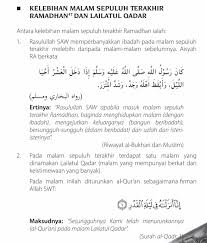 KELEBIHAN MALAM SEPULUH TERAKHIR
RAMADHAN DAN LAILATUL QADAR
Antara kelebihan malam sepuluh terakhir Ramadhan ialah:
1. Rasulullah SAW memperbanyakkan ibadah pada malam sepuluh
terakhir melebihi daripada malam-malam sebelumnya. Aisyah
RA berkata
كَانَ رَسُولُ اللهِ صَلَّى اللهُ عَلَيْهِ وَسَلَّمَ إِذَا دَخَلَ الْعَشْرُ أَحْيَا
اللَّيْلَ، وَأَيْقَظَ أَهْلَهُ وَجَدَّ، وَشَدَّ الْمِئْزَرَ
(رواه البخاري ومسلم)
Ertinya: "Rasulullah SAW apabila masuk malam sepuluh
terakhir Ramadhan, baginda menghidupkan malam (dengan
ibadah), mengejutkan keluarganya (bangun beribadah),
bersungguh-sungguh (dalam beribadat) dan uzlah dan isteri-
isterinya".
(Riwayat al-Bukhari dan Muslim)
2. Pada malam sepuluh terakhir terdapat satu malam yang
dinamakan Lailatul Qadar (malam yang mempunyai berkat dan
keistimewaan yang banyak).
Pada malam inilah diturunkan al-Qur'an sebagaimana firman
Allah SWT:
إِنَّا أَنزَلْنَاهُ فِي لَيْلَةِ الْقَدْرِ
Maksudnya: "Sesungguhnya Kami telah menurunkannya
(al-Qur'an) pada malam Lailatul Qadar".
(Surah al-Qadr: